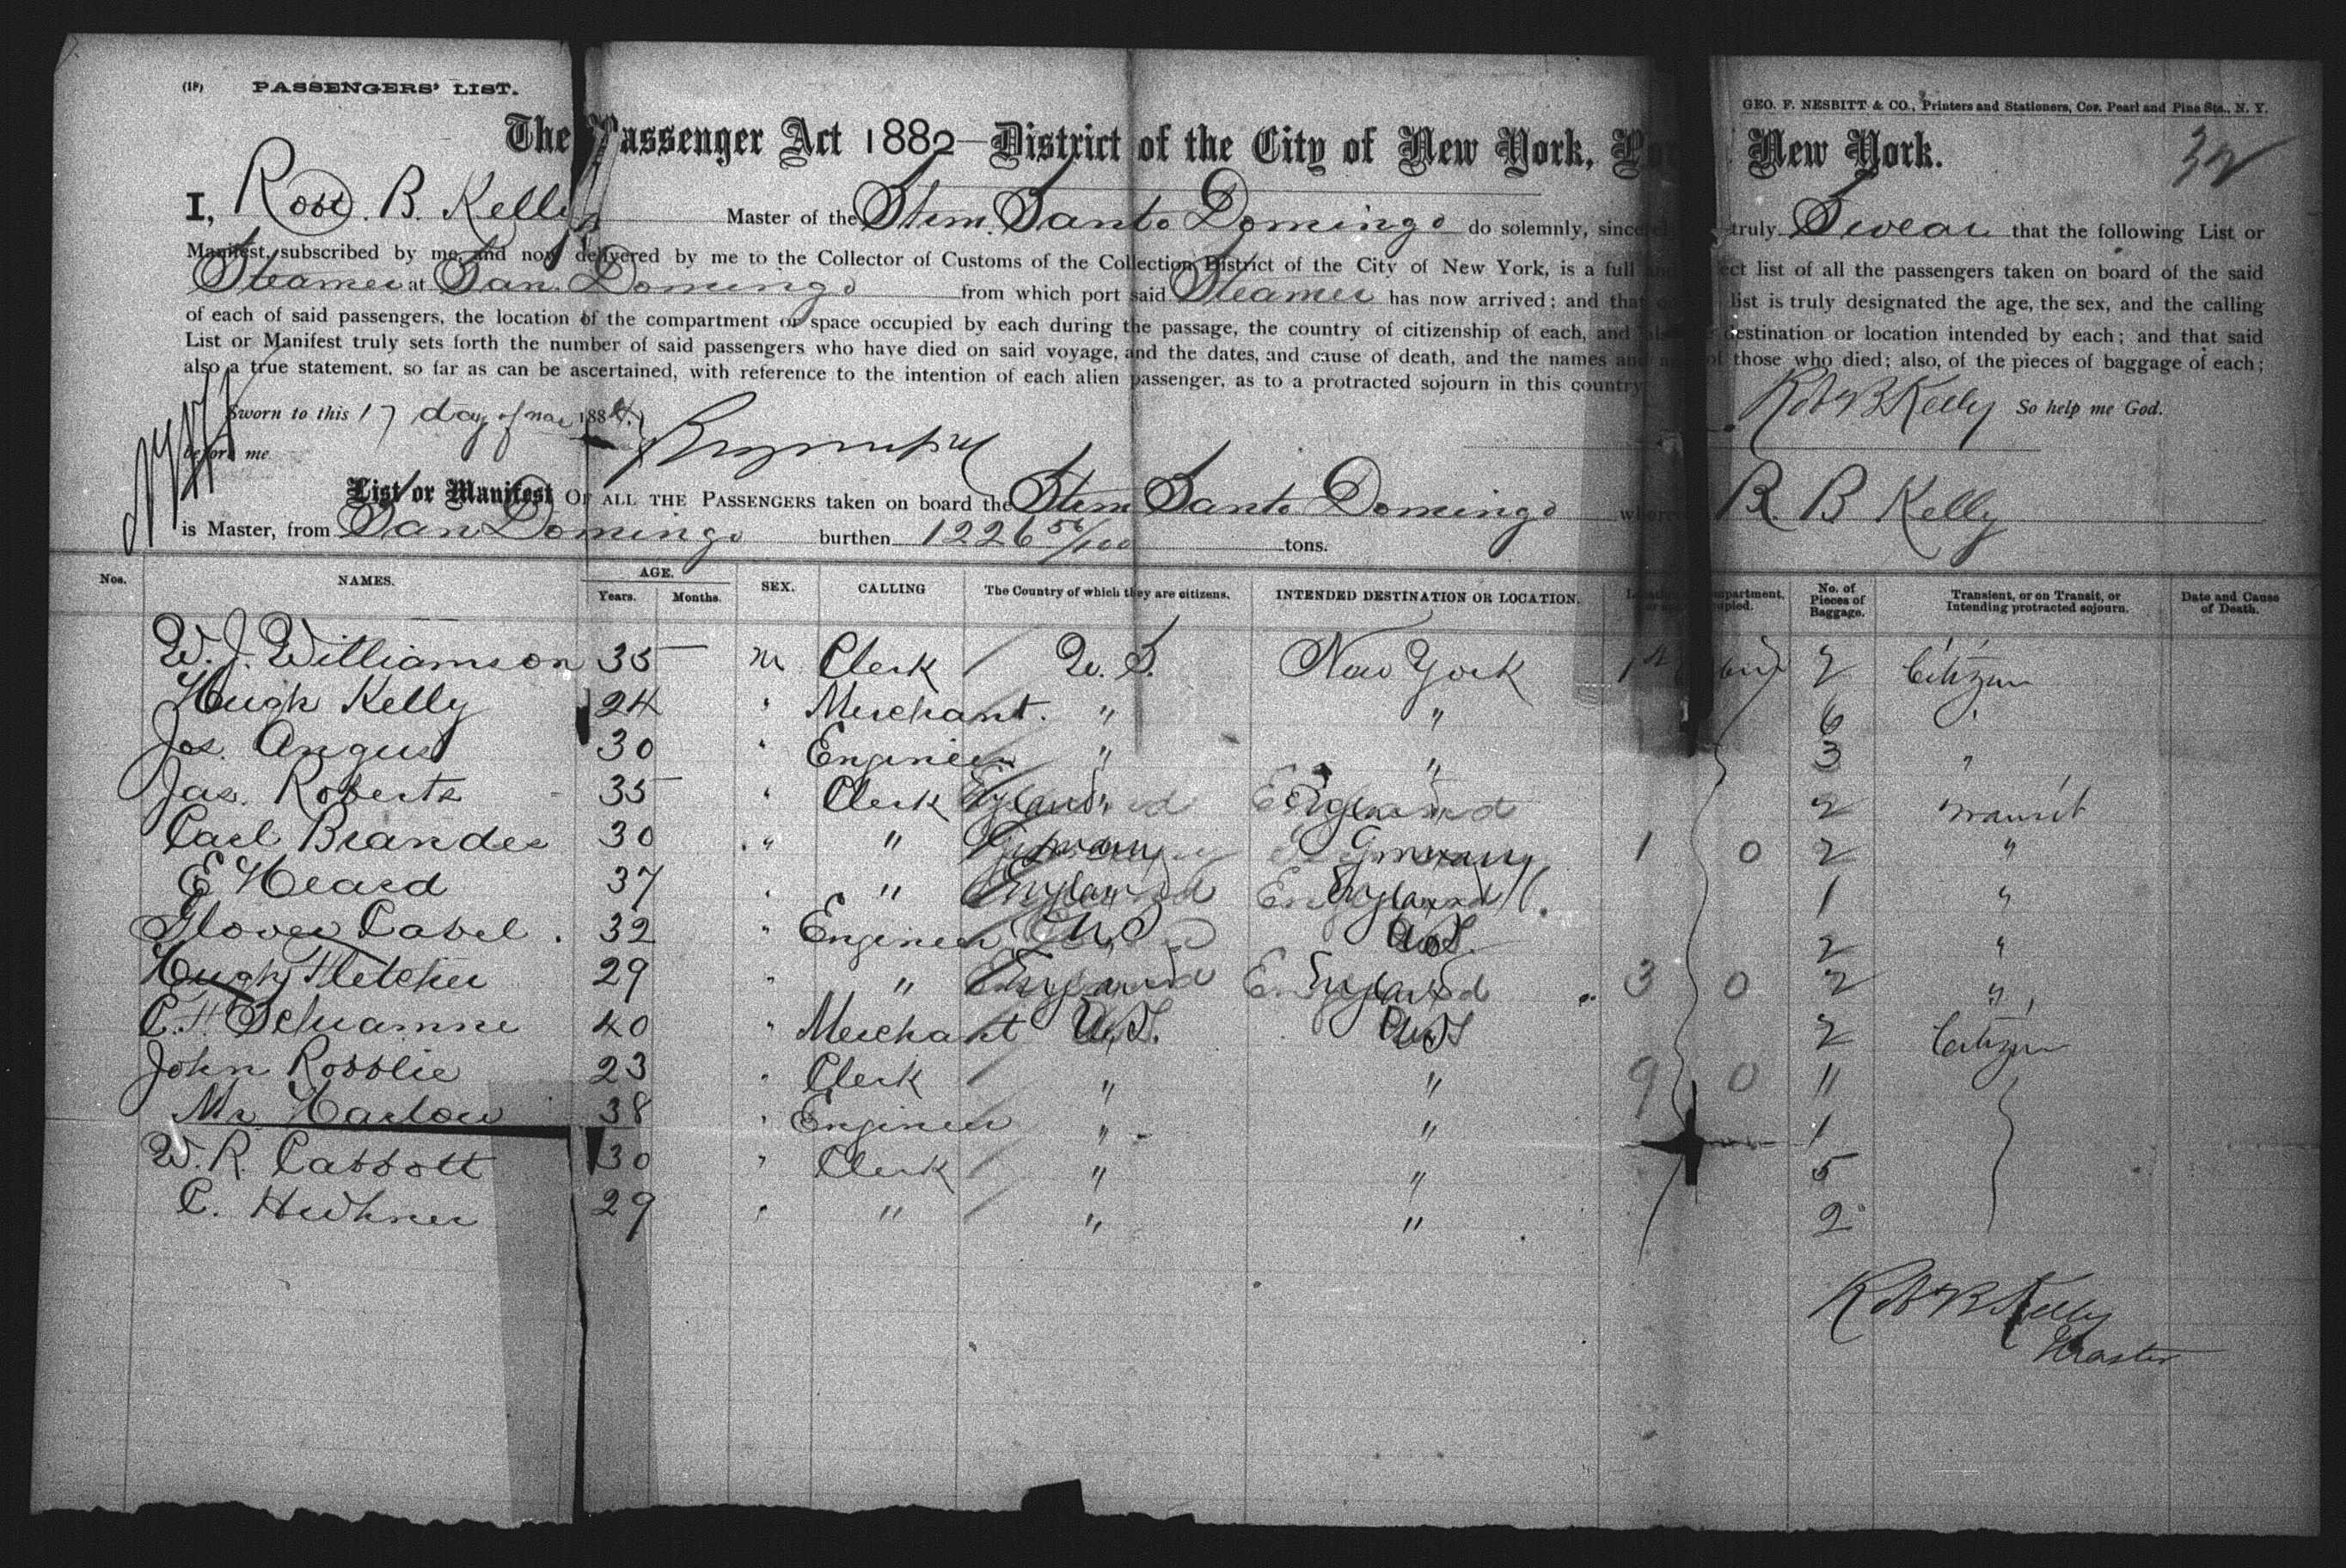 (18) PASSENGERS' LIST.
GEO. F. NESBITT & CO., Printers and Stationers, Cor. Pearl and Pine Sts., N. Y.
The Passenger Act 1882 — District of the City of New York, Por New York.
32
I, Robt. B. Kelly Master of the Stmr. Santo Domingo do solemnly, sincerely truly Swear that the following List or
Manifest, subscribed by me, and now delivered by me to the Collector of Customs of the Collection District of the City of New York, is a full and ect list of all the passengers taken on board of the said
Steamer at San Domingo from which port said Steamer has now arrived; and that on list is truly designated the age, the sex, and the calling
of each of said passengers, the location of the compartment or space occupied by each during the passage, the country of citizenship of each, and also destination or location intended by each; and that said
List or Manifest truly sets forth the number of said passengers who have died on said voyage, and the dates, and cause of death, and the names and of those who died; also, of the pieces of baggage of each;
also a true statement, so far as can be ascertained, with reference to the intention of each alien passenger, as to a protracted sojourn in this country
Robt B Kelly So help me God.
Sworn to this 17 day of Mar 1884.
before me
List or Manifest OF ALL THE PASSENGERS taken on board the Stmr Santo Domingo R B Kelly
is Master, from San Domingo burthen 1226 56/100 tons.
Nos. NAMES. AGE. Years. Months. SEX. CALLING The Country of which they are citizens. INTENDED DESTINATION OR LOCATION. No. of Pieces of Baggage. Transient, or on Transit, or Intending protracted sojourn. Date and Cause of Death.
W. J. Williamson 35 m Clerk U. S. New York 2 Citizen
Hugh Kelly 24 " Merchant. " " 6 "
Jos. Angus 30 " Engineer " " 3 "
Jas. Roberts 35 " Clerk England England 2 Transit
Carl Brandes 30 " " Germany Germany 1 0 2 "
E Heard 37 " " England England 1 "
Glover Cabel. 32 " Engineer U.S. 2 "
Hugh Fletcher 29 " " England England 3 0 2 "
C. H. Schramme 40 " Merchant U.S. US 2 Citizen
John Robblie 23 " Clerk " " 9 0 "
Mr. Harlow 38 " Engineer " " 1
W. R. Cabbott 30 " Clerk " " 5
C. 29 " " " " 2
Robt B Kelly
Master